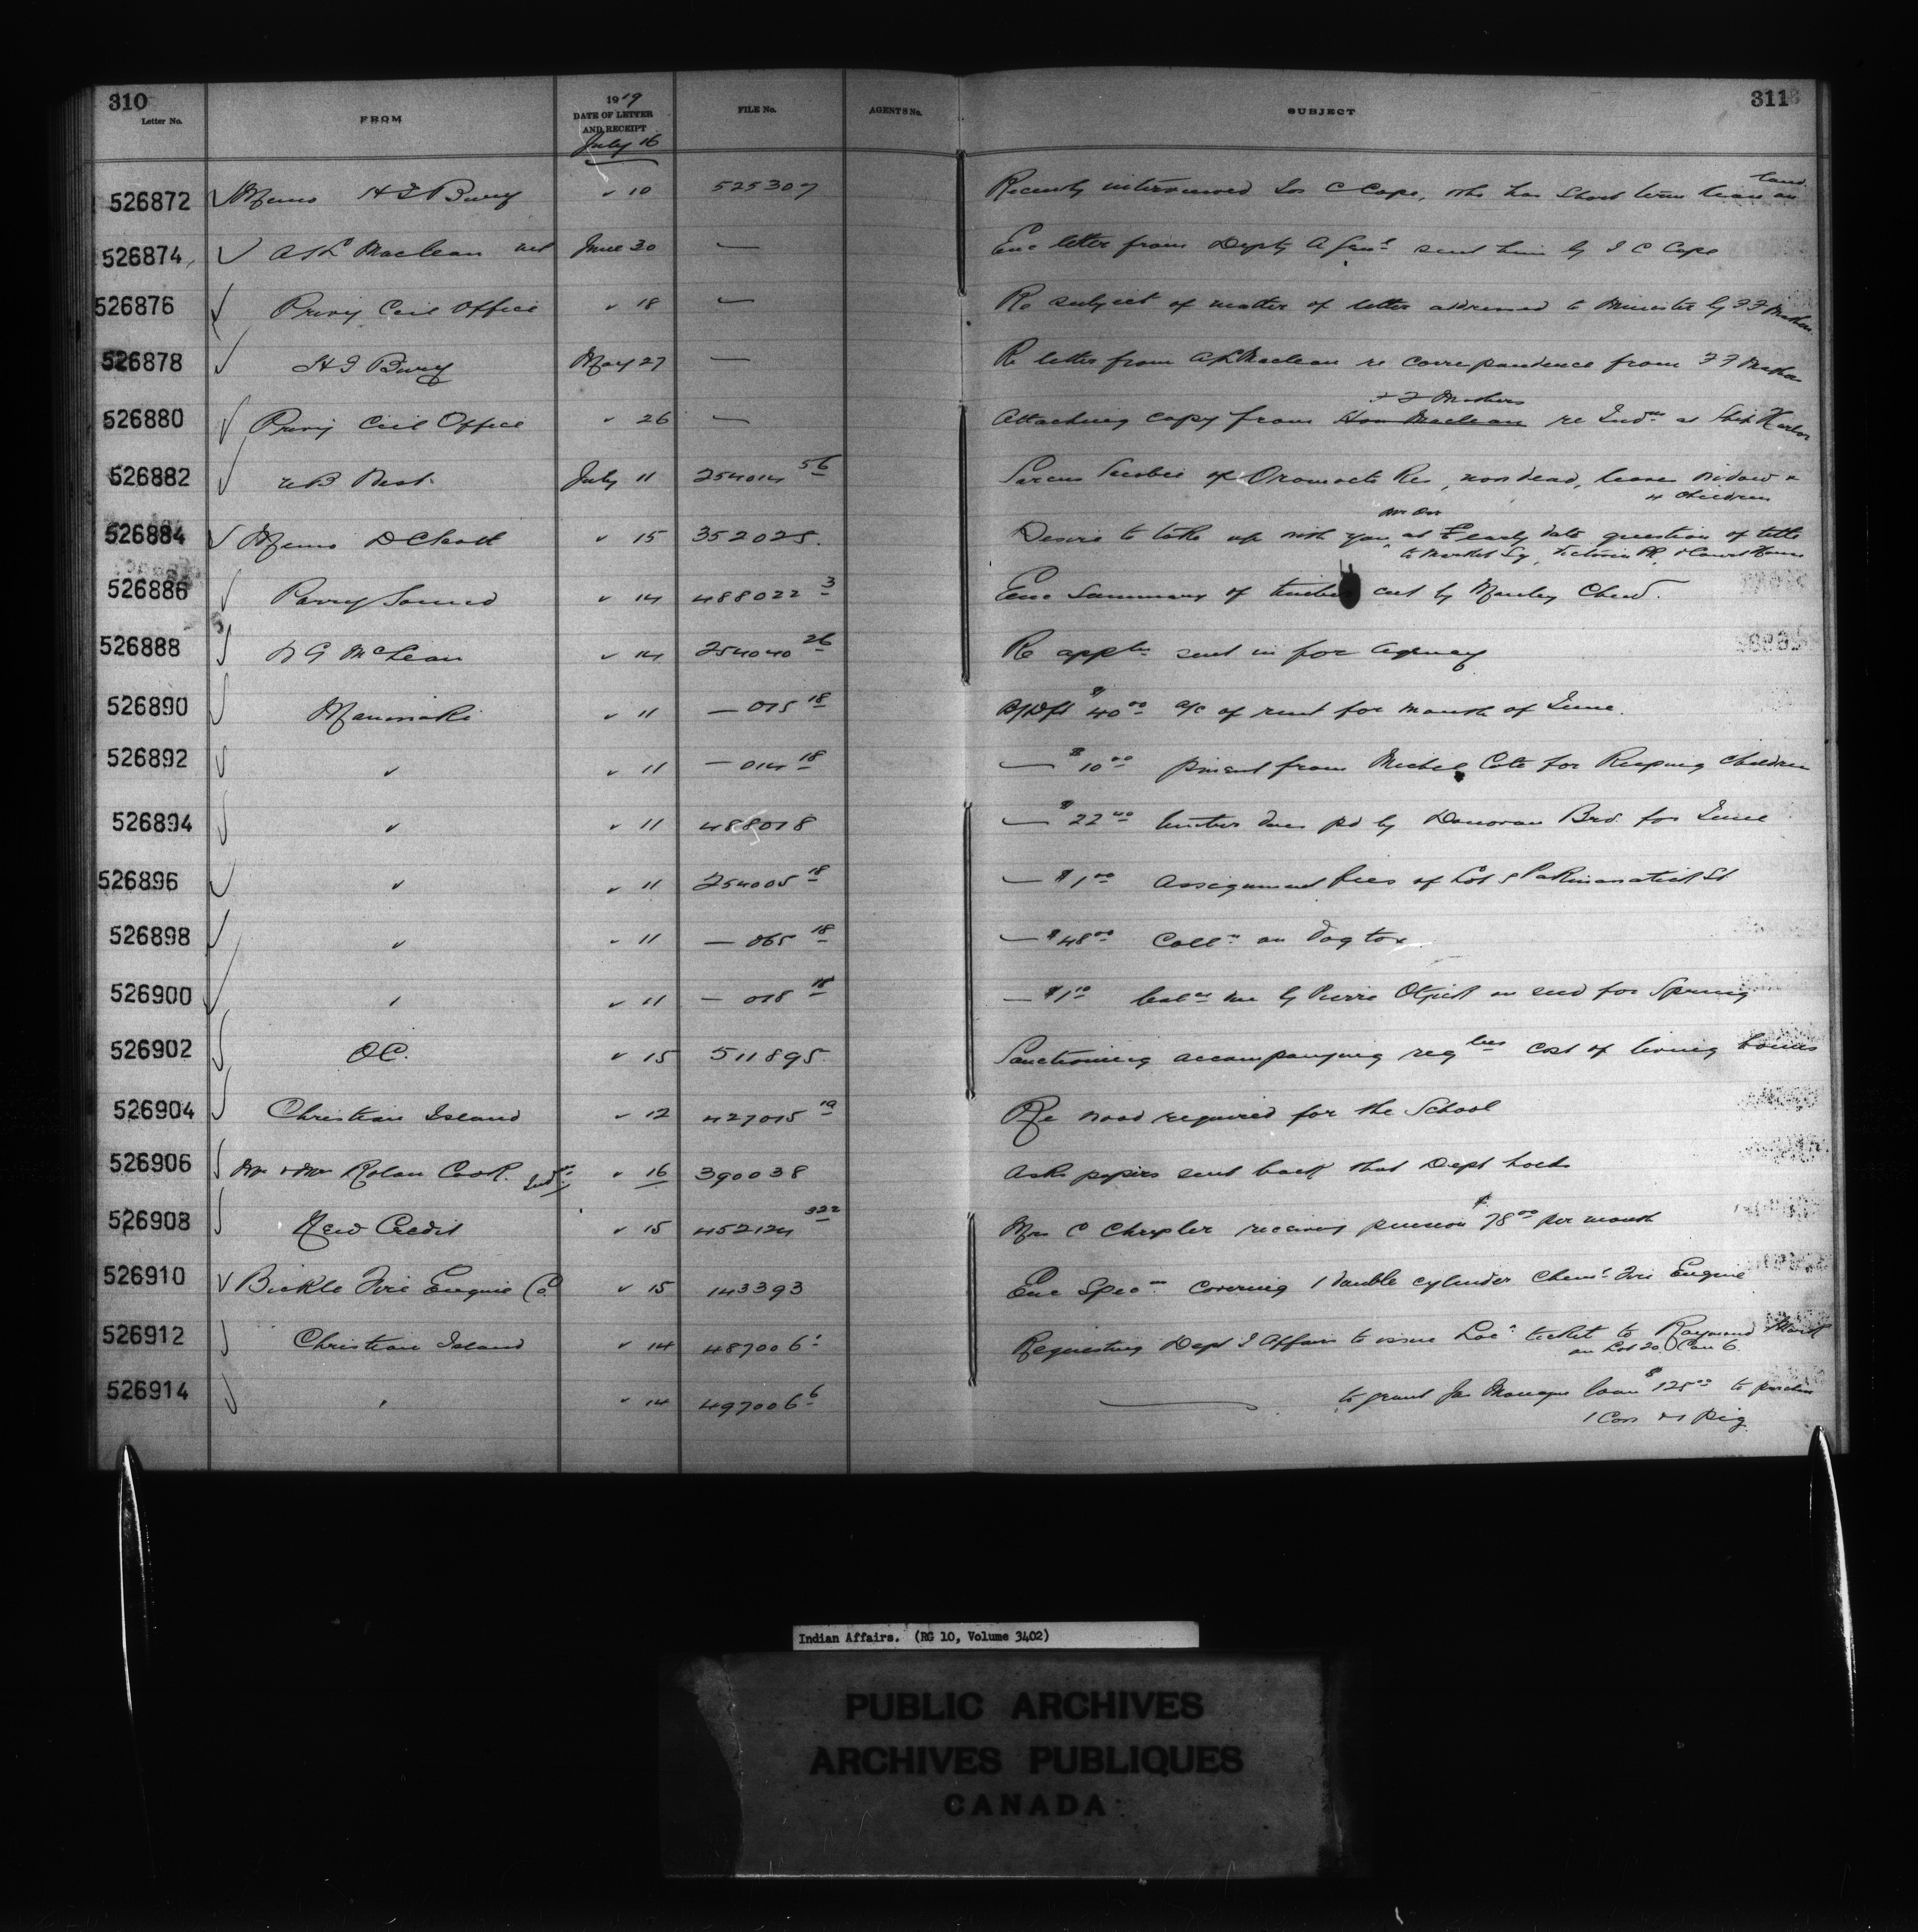 310
311
Letter No. FROM 1919 DATE OF LETTER AND RECEIPT FILE No. AGENTS No. SUBJECT
July 16
526872 Memo H J Bury " 10 525307 Recently interviewed Jos C Cope, who has short term lease on land
526874 A K Maclean June 30 — Enc letter from Depty A Genl sent him by J C Cope
526876 Privy Ccil Office " 18 — Re subject of matter of letter addressed to Minister by F F Mather
526878 H J Bury May 27 — Re letter from A K Maclean re correspondence from F F Mather
F F Mathers
526880 Privy Ccil Office " 26 — Attaching copy from Hon Maclean re Indns at Ship Harbor
526882 July 11 254014 56 of Oromocto Res, now dead, leaves widow &
4 children
526884 Memo D C Scott " 15 352025. Desire to take up with you at early date question of title
to Market Sq, Victoria Pk, & Court House
526886 Parry Sound " 14 488022 3 Enc Summary of timber cut by Manley Chew.
526888 McLean " 14 254040 26 Re appln sent in for Agency
526890 Maniwaki " 11 — 015 18 $40 00 a/c of rent for month of June.
526892 " " 11 — 014 18 — $10 00 from Michel Cote for Keeping Children
526894 " " 11 488018 — $22 40 timber dues pd by Donovan Bro. for June
526896 " " 11 254005 18 — $1 00 Assignment fees of Lot St
526898 " " 11 — 065 18 — $48 00 Colln on dog tax
526900 " " 11 — 018 18 — $1 10 due by Pierre on seed for Spring
526902 OC. " 15 511895 Sanctioning accompanying reglns cost of living bonus
526904 Christian Island " 12 427015 19 Re wood required for the School
526906 Mr & Mrs Rolan Cook. Ind " 16 390038 Asks papers sent back that Dept holds
526908 New Credit " 15 452124 322 Mrs C Chrysler receives pension $78 00 per month
526910 Bickle Fire Engine Co " 15 143393 Enc Specn covering 1 double cylinder Cheml Fire Engine
526912 Christian Island " 14 487006 Requesting Dept I Affairs to issue Locn ticket to Raymond
on Lot 20 Con 6
526914 " " 14 497006 6 — to grant Jas Monague loan $125 00 to purchase
1 Cow & 1 Pig
Indian Affairs. (RG 10, Volume 3402)
PUBLIC ARCHIVES
ARCHIVES PUBLIQUES
CANADA